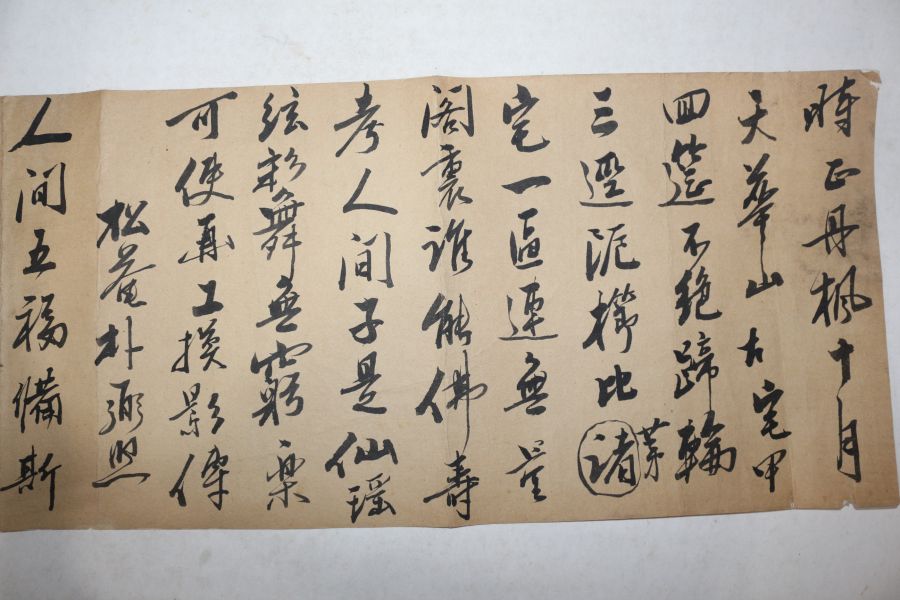 時正丹楓十月
天華山古宅甲
四筵不絶蹄輪
茅
三逕泥櫛比諸
宅一區連無量
閣裏誰能佛壽
考人間子是仙瑶
絃彩舞無窮樂
可使畵工摸影傳
松菴朴弼熙
人間五福備斯